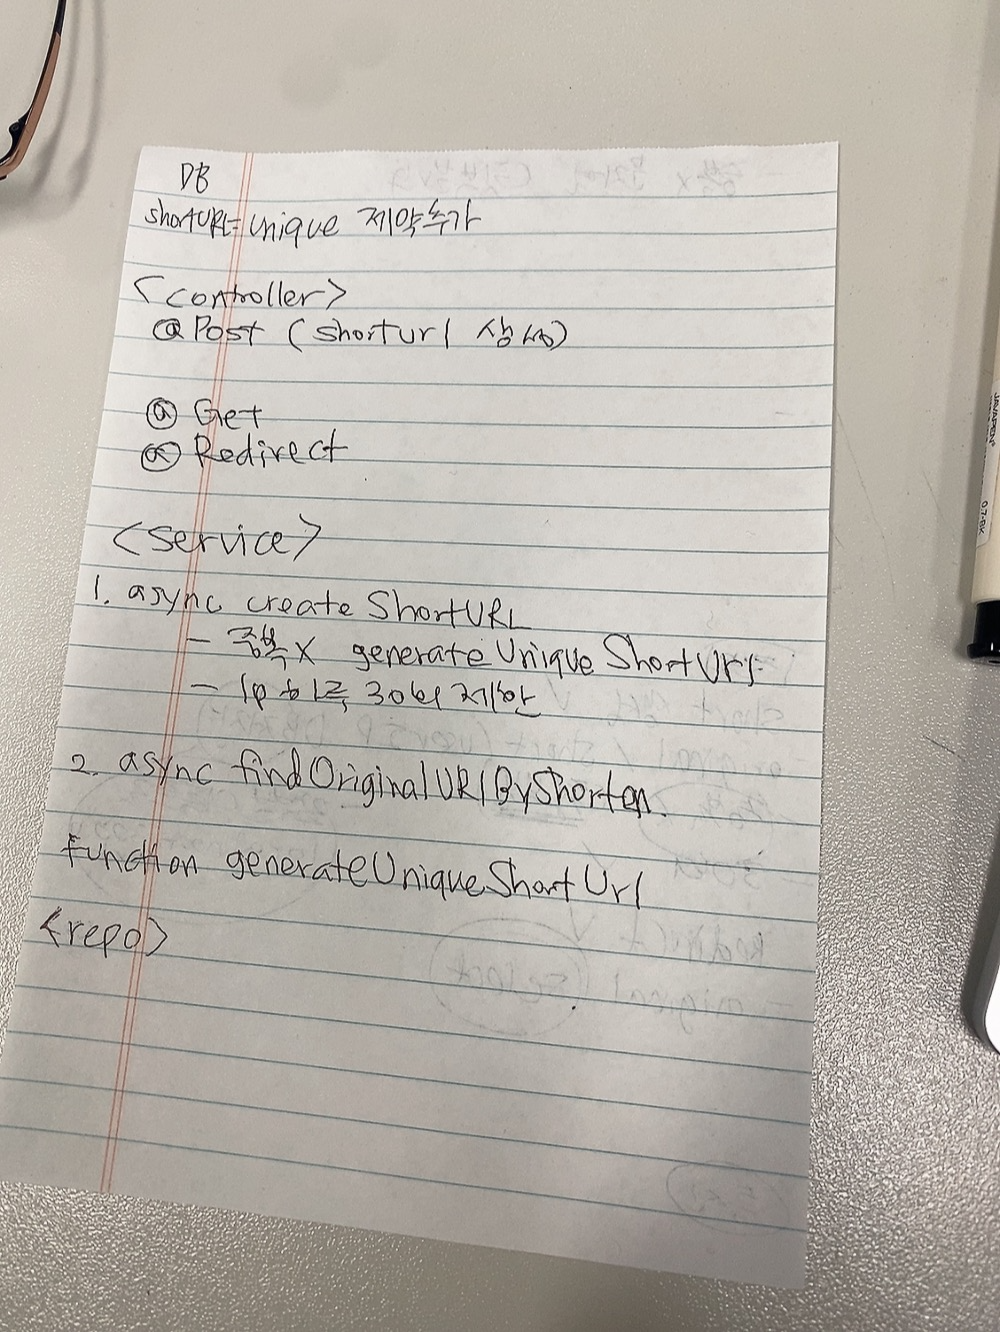 DB
shortURL= unique 제약추가
<controller>
@Post (shorturl 생성)
@ Get
@ Redirect
<service>
1. async create ShortURL
- 중복X generateUnique ShortUrl
- 1p 하루 30번 제한
2. async findOriginalURlByShorten.
function generateUniqueShortUrl
<repo>
JAVAPEN
0.7-BK